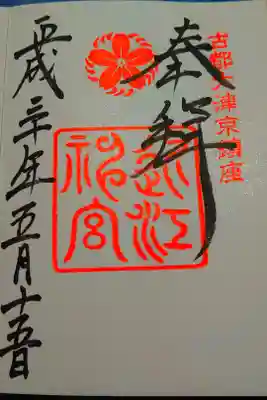 古都大津京鎮座
奉拝
近江神宮
平成二十年五月十五日